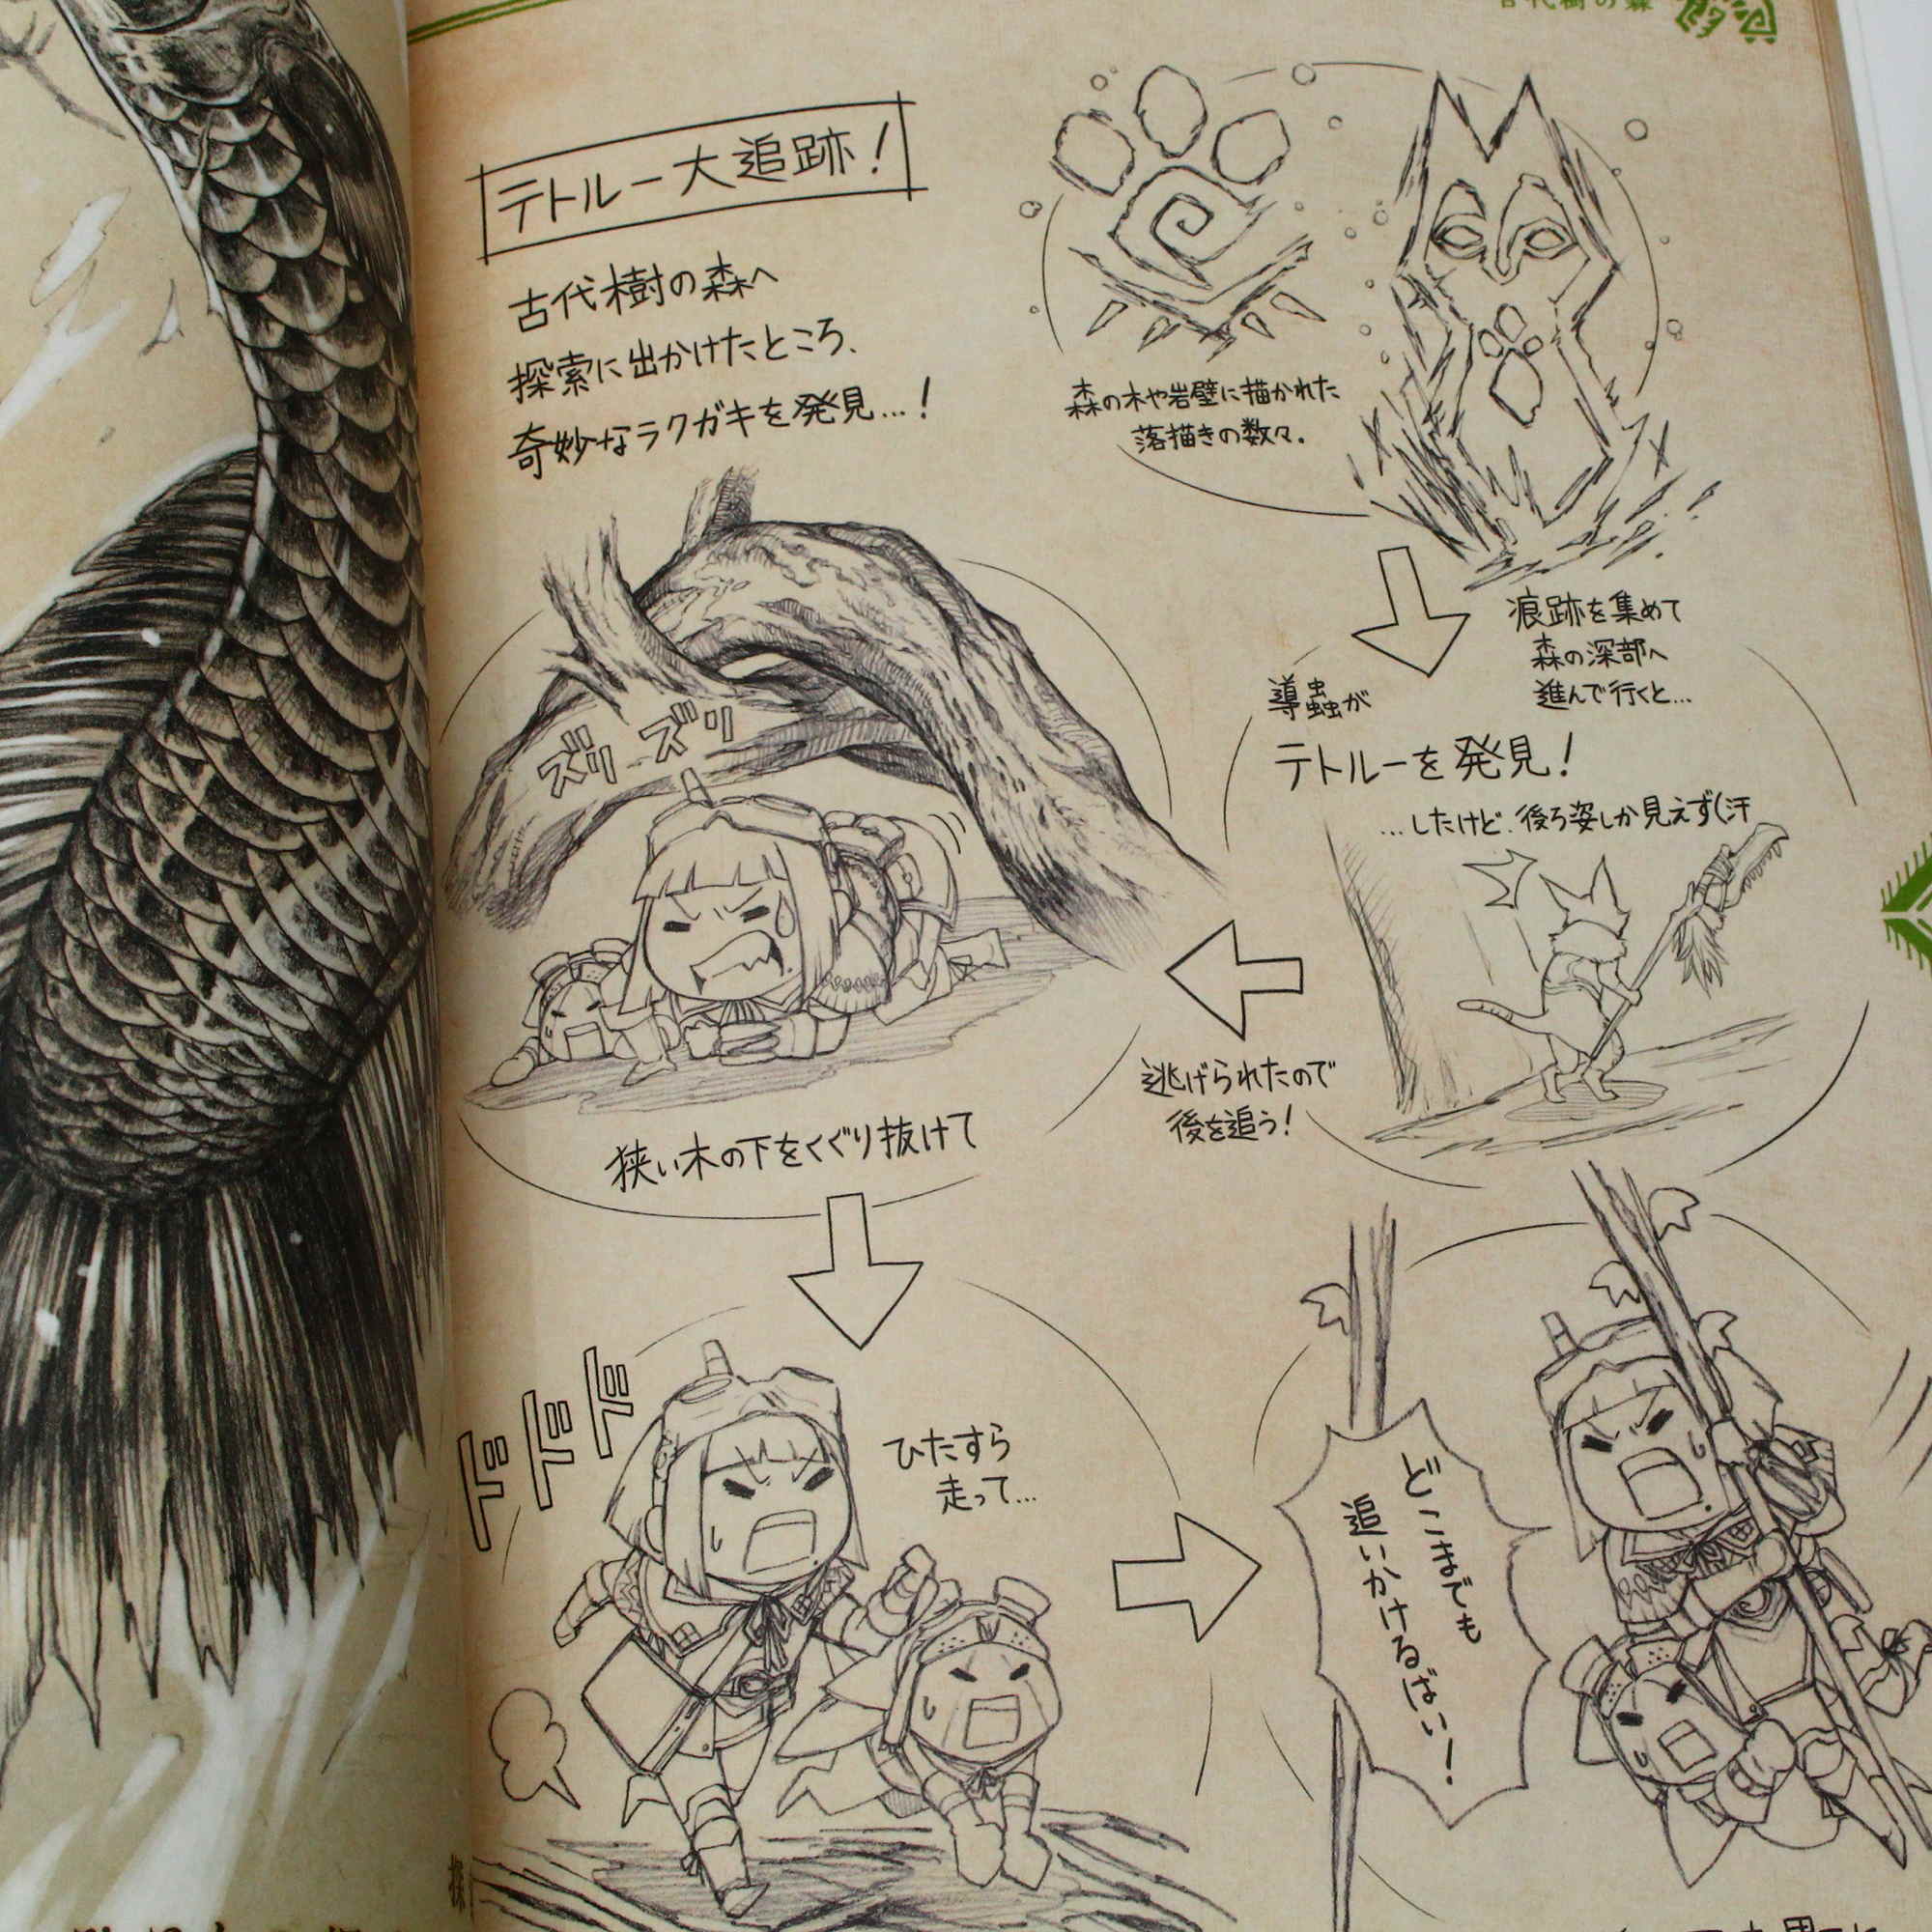 古代樹の森
テトルー大追跡！
古代樹の森へ
探索に出かけたところ、
奇妙なラクガキを発見…！
森の木や岩壁に描かれた
落描きの数々。
痕跡を集めて
森の深部へ
進んで行くと…
導蟲が
テトルーを発見！
…したけど、後ろ姿しか見えず(汗
逃げられたので
後を追う！
ズリ ズリ
狭い木の下をくぐり抜けて
ひたすら
走って…
どこまでも
追いかけるばい！